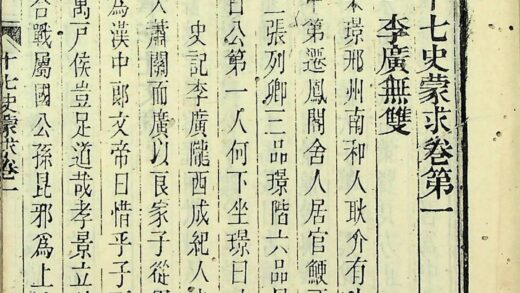 十七史蒙求卷第一
李廣無雙
宋璟邢州南和人耿介有
中第遷鳳閣舍人居官鯁
二張列卿三品璟階六品
曰公第一人何下坐璟曰
史記李廣隴西成紀人
入蕭關而廣以良家子從
為漢中郎文帝曰惜乎子
萬戶侯豈足道哉孝景立
合戰屬國公孫昆邪為上
十七史蒙求卷一